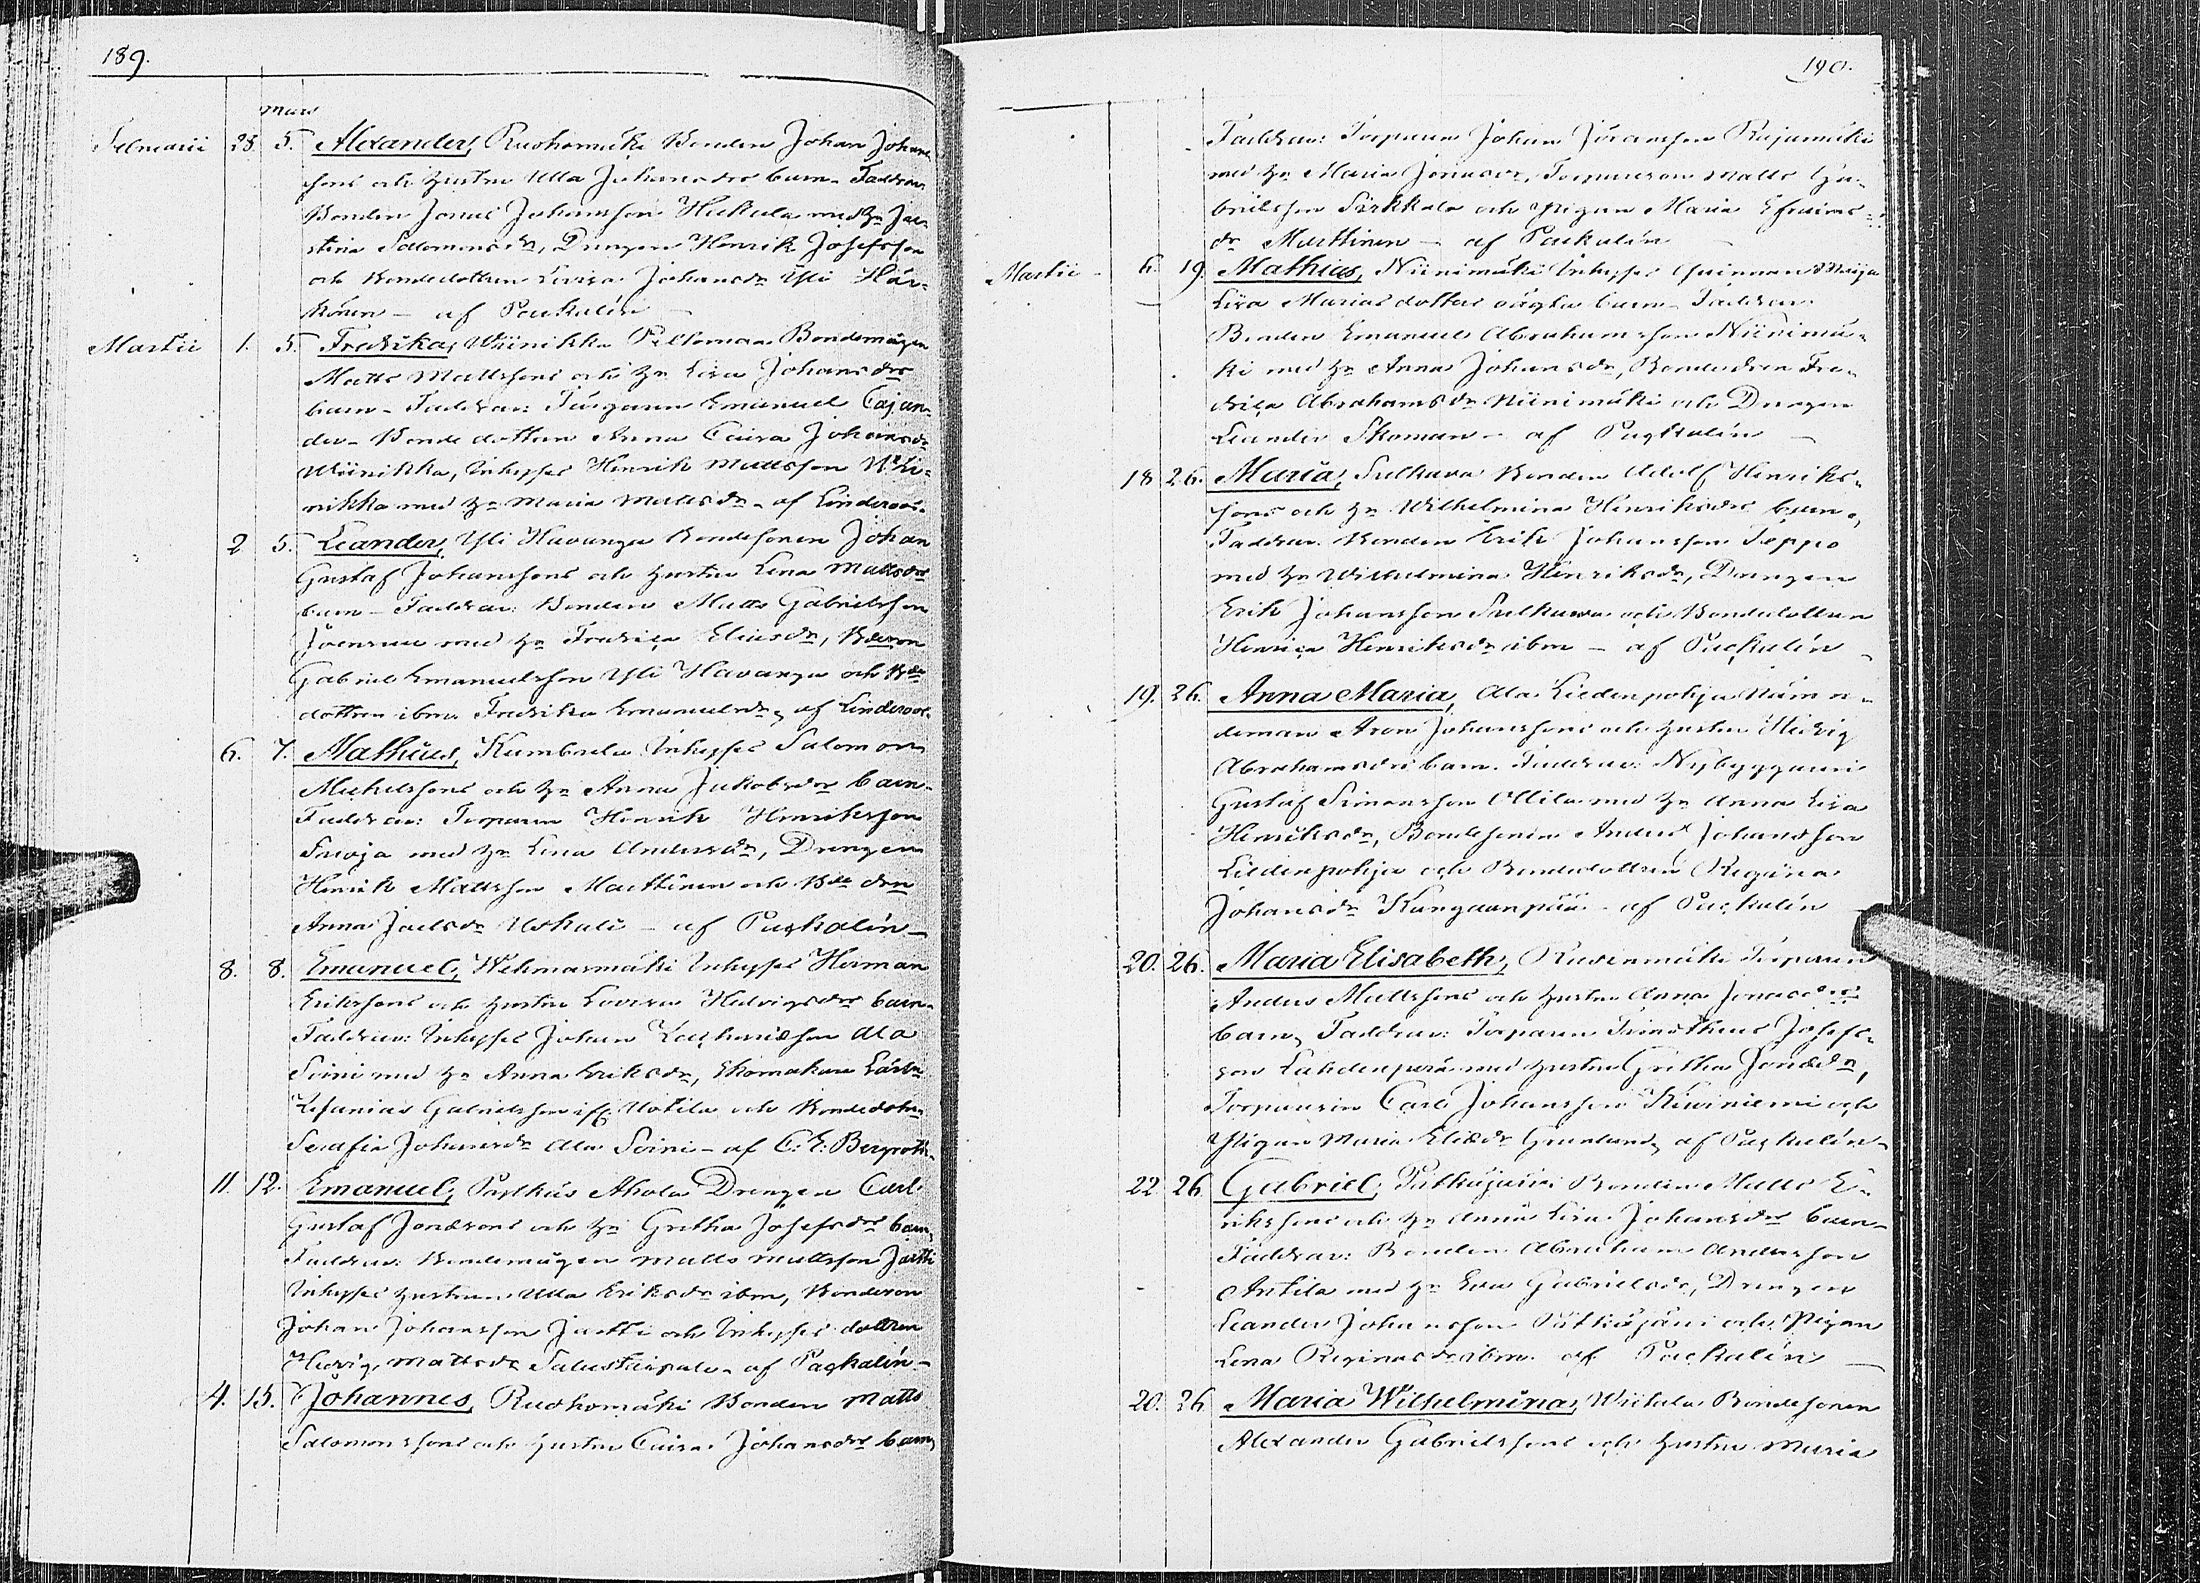 189.
Mars
Februarii 28. 5. Alexander, Ruohomäki Bonden Johan Johans
sons och hustru Ulla Johansdrs barn. Faddrar
Bonden Jonas Johansson Hukula med Hu Ju-
stina Salomonsdr, Drengen Henrik Josefsson
och Bondedottren Lovisa Johansdr Yli Här-
könen – af Paskalín –
Martii 1. 5. Fredrika, Wiinikka Peltomaa Bondemågen
Matts Mattssons och Hu Lisa Johansdrs
barn – Faddrar: Emanuel Cajan-
der – Bondedottren Anna Caisa Johansdr
Wiinikka, Inhyses Henrik Mattsson Wii-
nikka med Hu Maria Mattsdr – af Linderoos.
2 5. Leander, Yli Havanga Bondesonen Johan
Gustaf Johanssons och hustru Lena Mattsdrs
barn – Faddrar: Bonden Matts Gabrielsson
Joensuu med Hu Fredrica Eliasdr, Bdeson
Gabriel Emanuelsson Yli Havanga och Bde
dottren ibm Fredrika Emanuelsdr, af Linderoos.
6. 7. Mathias, Kambrela Inhyses Salomon
Michelssons och Hu Anna Jakobsdrs barn.
Faddrar: Torparen Henrik Henriksson
Suoja med Hu Lena Andersdr, Drengen
Henrik Mattsson Marttinen och Bde dren
Anna Joelsdr Uskali – af Paskalín –
8. 8. Emanuel, Wehmasmäki Inhyses Herman
Erikssons och hustru Lovisa Hedvigsdrs barn.
Faddrar: Inhyses Johan Zachrisson Ala
Soini med Hu Anna Eriksdr, Skomakare Lärl.
Zefanias Gabrielsson Uotila och Bondedotr.
Serafia Johansdr Ala Soini – af C. E. Bergroth.
11. 12. Emanuel, Pastkus Ahola Drengen Carl
Gustaf Jonassons och Hu Gretha Josefsdrs barn,
Faddrar: Bondemågen Matts Mattsson Jatti
Inhyses hustrun Ulla Eriksdr ibm, Bondeson
Johan Johansson Jatti och Inhyses dottren
Hedvig Mattsdr – af Paskalín –
4. 15. Johannes, Ruohomäki Bonden Matts
Salomonssons och hustru Caisa Johansdrs barn,
190.
Faddrar: Torparen Johan Jöransson Rajamäki
med Hu Maria Jonasdr, Torpareson Matts Ga-
brielsson Sirkkala och Pigan Maria Efraims-
dr Marttinen – af Paskalín –
Martii – 6. 19. Mathias, Niinimäki Inhyses Qvinnan Maija
Lisa Mariasdotters oägta barn – Faddrar:
Bonden Emanuel Abrahamsson Niinimä-
ki med Hu Anna Johansdr, Bondedren Fre-
drica Abrahamsdr Niinimäki och Drengen
Leander Skoman – af Paskalín –
18 26. Maria, Sulkava Bonden Adolf Henriks-
sons och Hu Wilhelmina Henriksdrs barn,
Faddrar: Bonden Erik Johansson Seppo
med Hu Wilhelmina Henriksdr, Drengen
Erik Johansson Sulkava och Bondedottren
Henrica Henriksdr ibm – af Paskalín –
19. 26. Anna Maria, Ala Liedenpohja Nämn-
deman Aron Johanssons och hustru Hedvig
Abrahamsdrs barn. Faddrar: Nybyggaren
Gustaf Simonsson Ollila med Hu Anna Lisa
Henriksdr, Bondesonen Anders Johansson
Liedenpohja och Bondedottren Regina
Johansdr Kangaanpää – af Paskalín
20. 26. Maria Elisabeth, Torparen
Anders Mattssons och hustru Anna Jonasdrs
barn, Faddrar: Torparen Timotheus Josefs-
son Lahdenperä med hustru Gretha Jonasdr,
Torparen Carl Johansson Kiviniemi och
Pigan Maria Eliædr Grönlund, af Paskalín –
22 26. Gabriel, Pätkäjärvi Bonden Matts E-
rikssons och Hu Anna Lisa Johansdrs barn –
Faddrar: Bonden Abraham Andersson
Antila med Hu Eva Gabrielsdr, Drengen
Leander Johansson Pätkäjärvi och Pigan
Lena Reginasdr ibm. af Paskalín –
20. 26 Maria Wilhelmina, Wiitala Bondesonen
Alexander Gabrielssons och hustru Maria